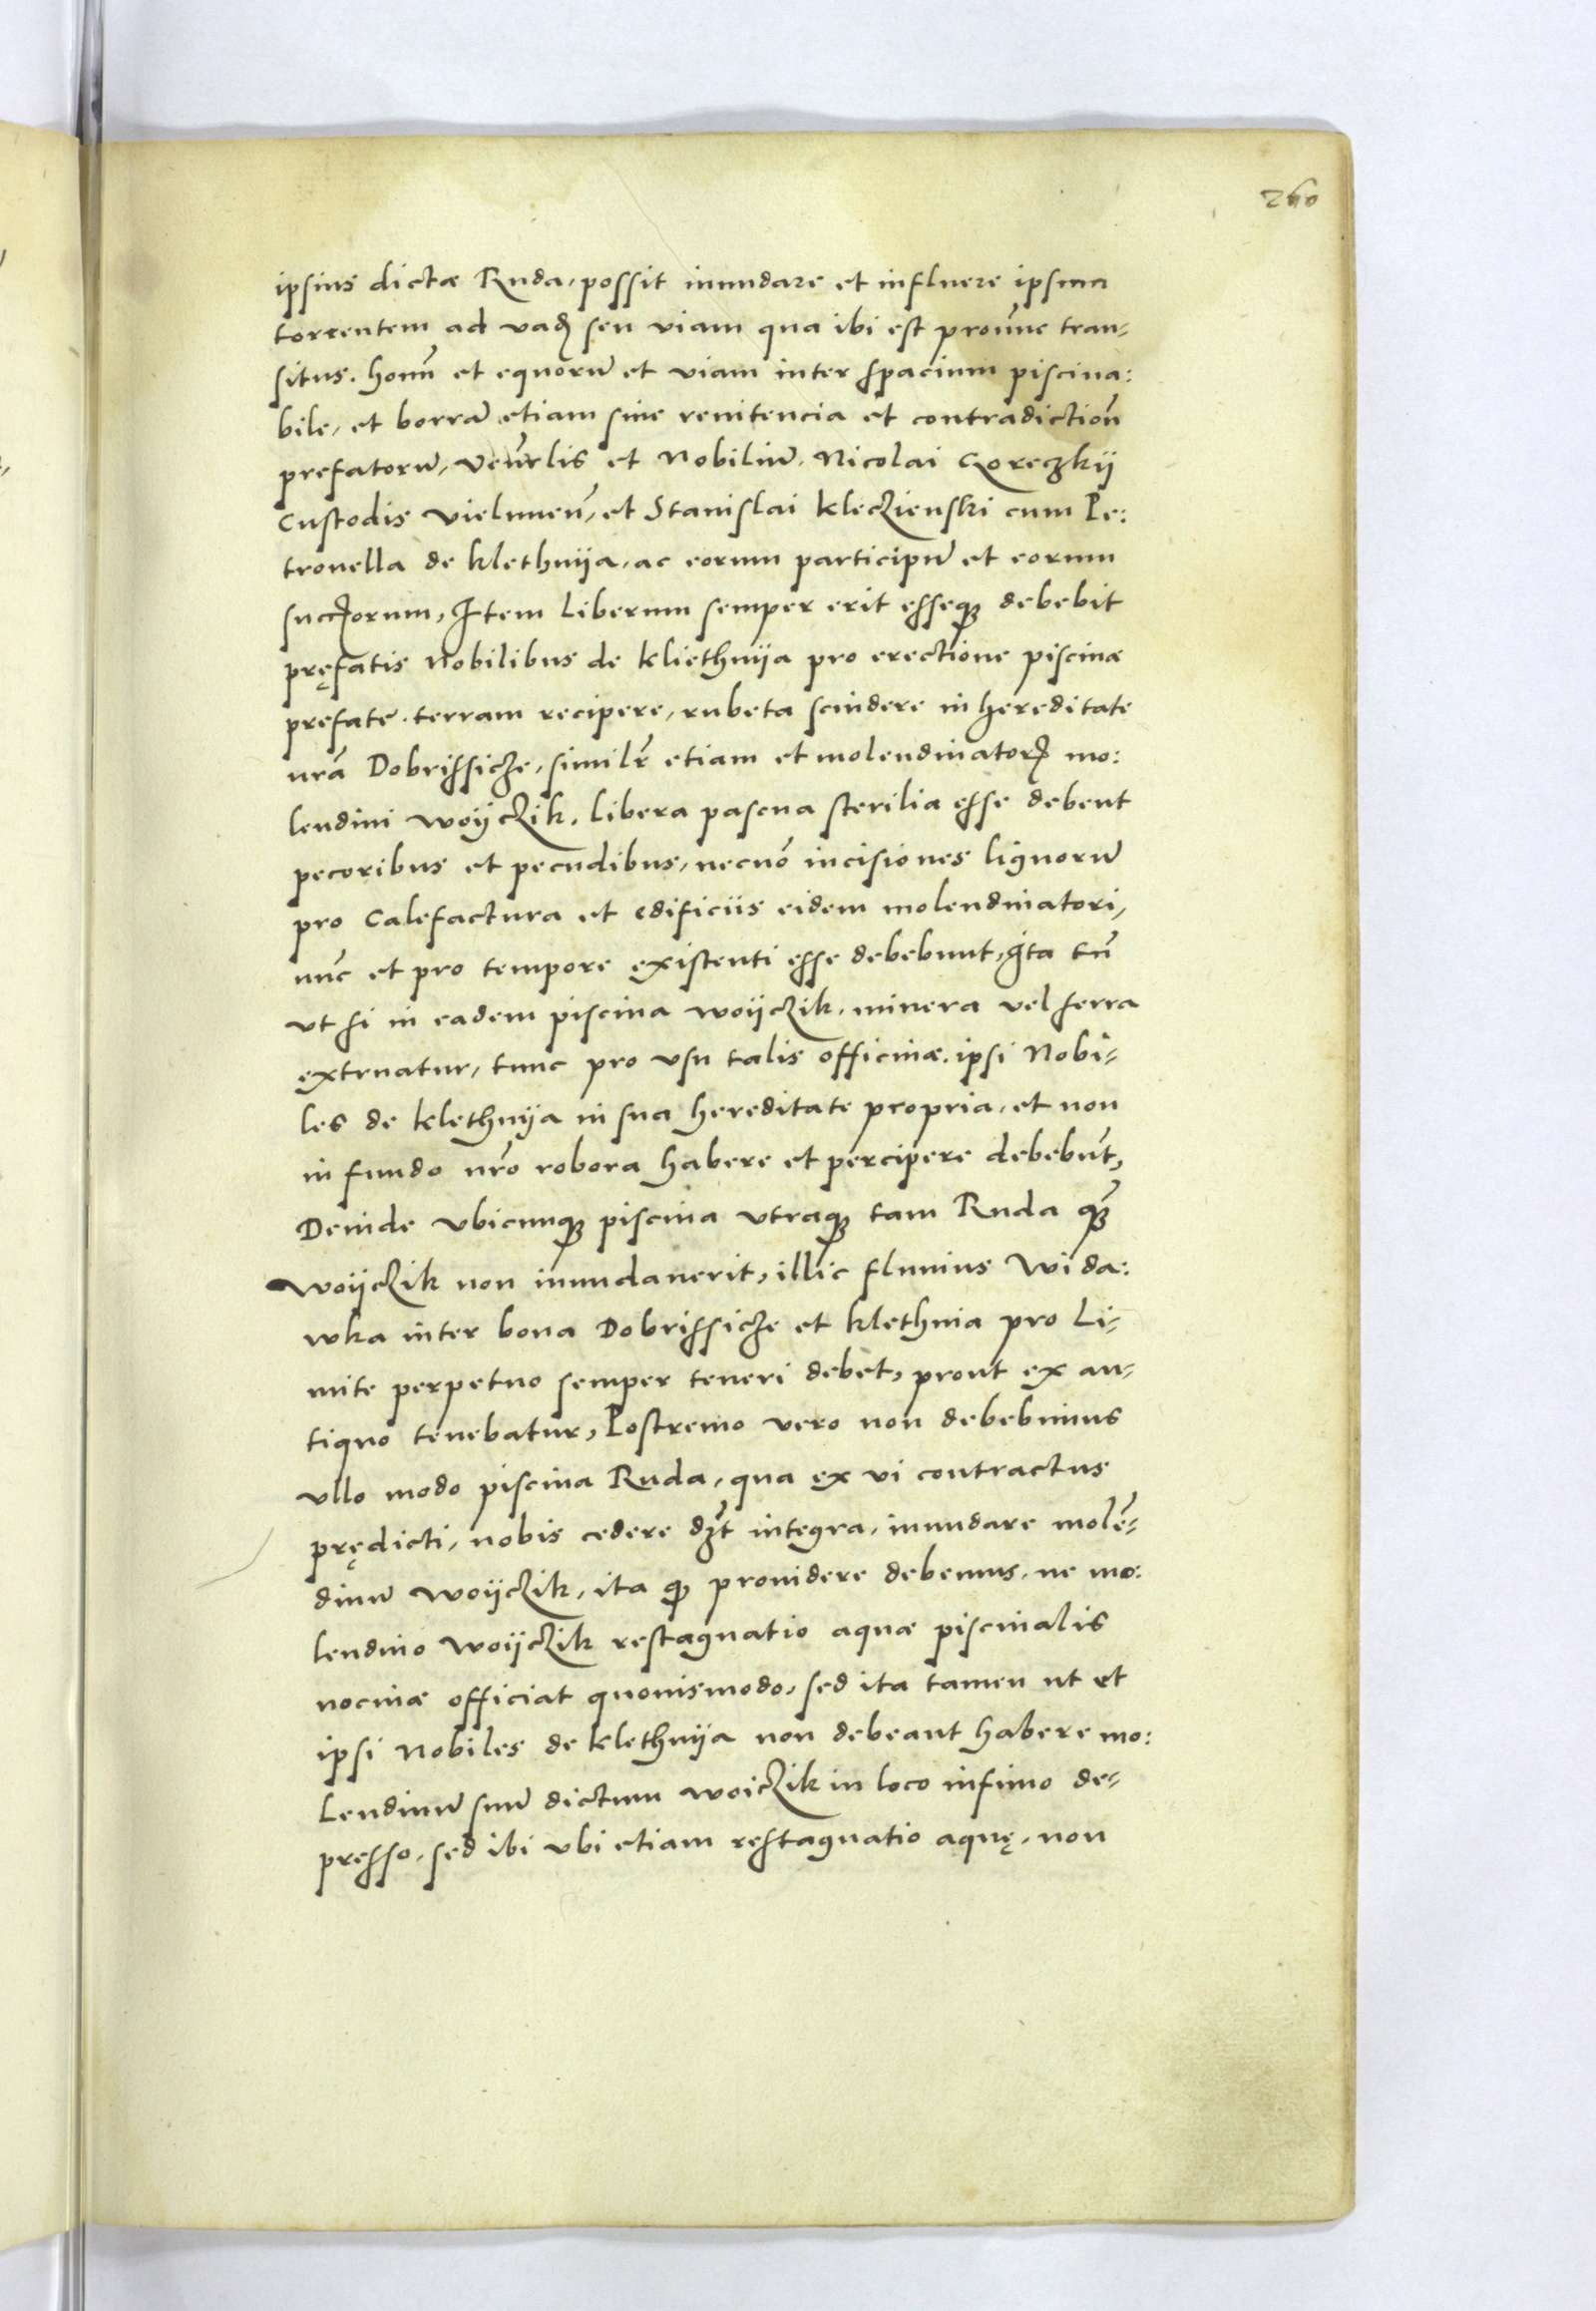 260
ipsius dictæ Ruda, possit inundare et influere ipsum
torrentem ad vadꝫ seu viam qua ibi est pronũc tran-
situs. homũ et equorũ et viam inter spacium piscina:
bile, et borrã etiam sine renitencia et contradictioñ
prefatorũ, Veñrlis et Nobiliũ. Nicolai Goreczkÿ
Custodis vieluneñ, et Stanislai kleczienski cum Pe:
tronella de klethnÿa, ac eorum participũ et eorum
succꝫorum, Item Liberum semper erit esseqꝫ debebit
pręfatis Nobilibus de kliethnÿa pro erectione piscinæ
pręfatę. terram recipere, rubeta scindere in hereditate
nrã Dobrissicze, similr̃ etiam et molendinatorꝫ mo:
lendini woÿczik. libera pascua sterilia esse debent
pecoribus et pecudibus, necnõ incisiones lignorũ
pro Calefactura et edificiis eidem molendinatori,
nũc et pro tempore existenti esse debebunt, Ita tñ
vt si in eadem piscina woÿczik. minera vel ferra
extruatur, tunc pro vsu talis officinæ. ipsi Nobi-
les de klethnÿa in sua hereditate propria, et non
in fundo nr̃o robora habere et percipere debebũt,
Deinde vbicunqꝫ piscina vtraqꝫ tam Ruda qꝫ̃
woÿczik non inundauerit, illic fluuius Wida:
wka inter bona Dobrissicze et klethnia pro Li-
mite perpetuo semper teneri debet, prout ex an-
tiquo tenebatur, Postremo vero non debebimus
vllo modo piscina Ruda, qua ex vi contractus
prędicti, nobis cedere dꝫt integra, inundare molẽ-
dinũ woÿczik, ita qꝫ prouidere debemus. ne mo:
lendino woÿczik restagnatio aquæ piscinalis
nociuæ officiat quouismodo, sed ita tamen ut et
ipsi Nobiles de klethnÿa non debeant habere mo:
lendinũ suũ dictum woiczik in loco infimo de-
presso. sed ibi vbi etiam restagnatio aquę, non